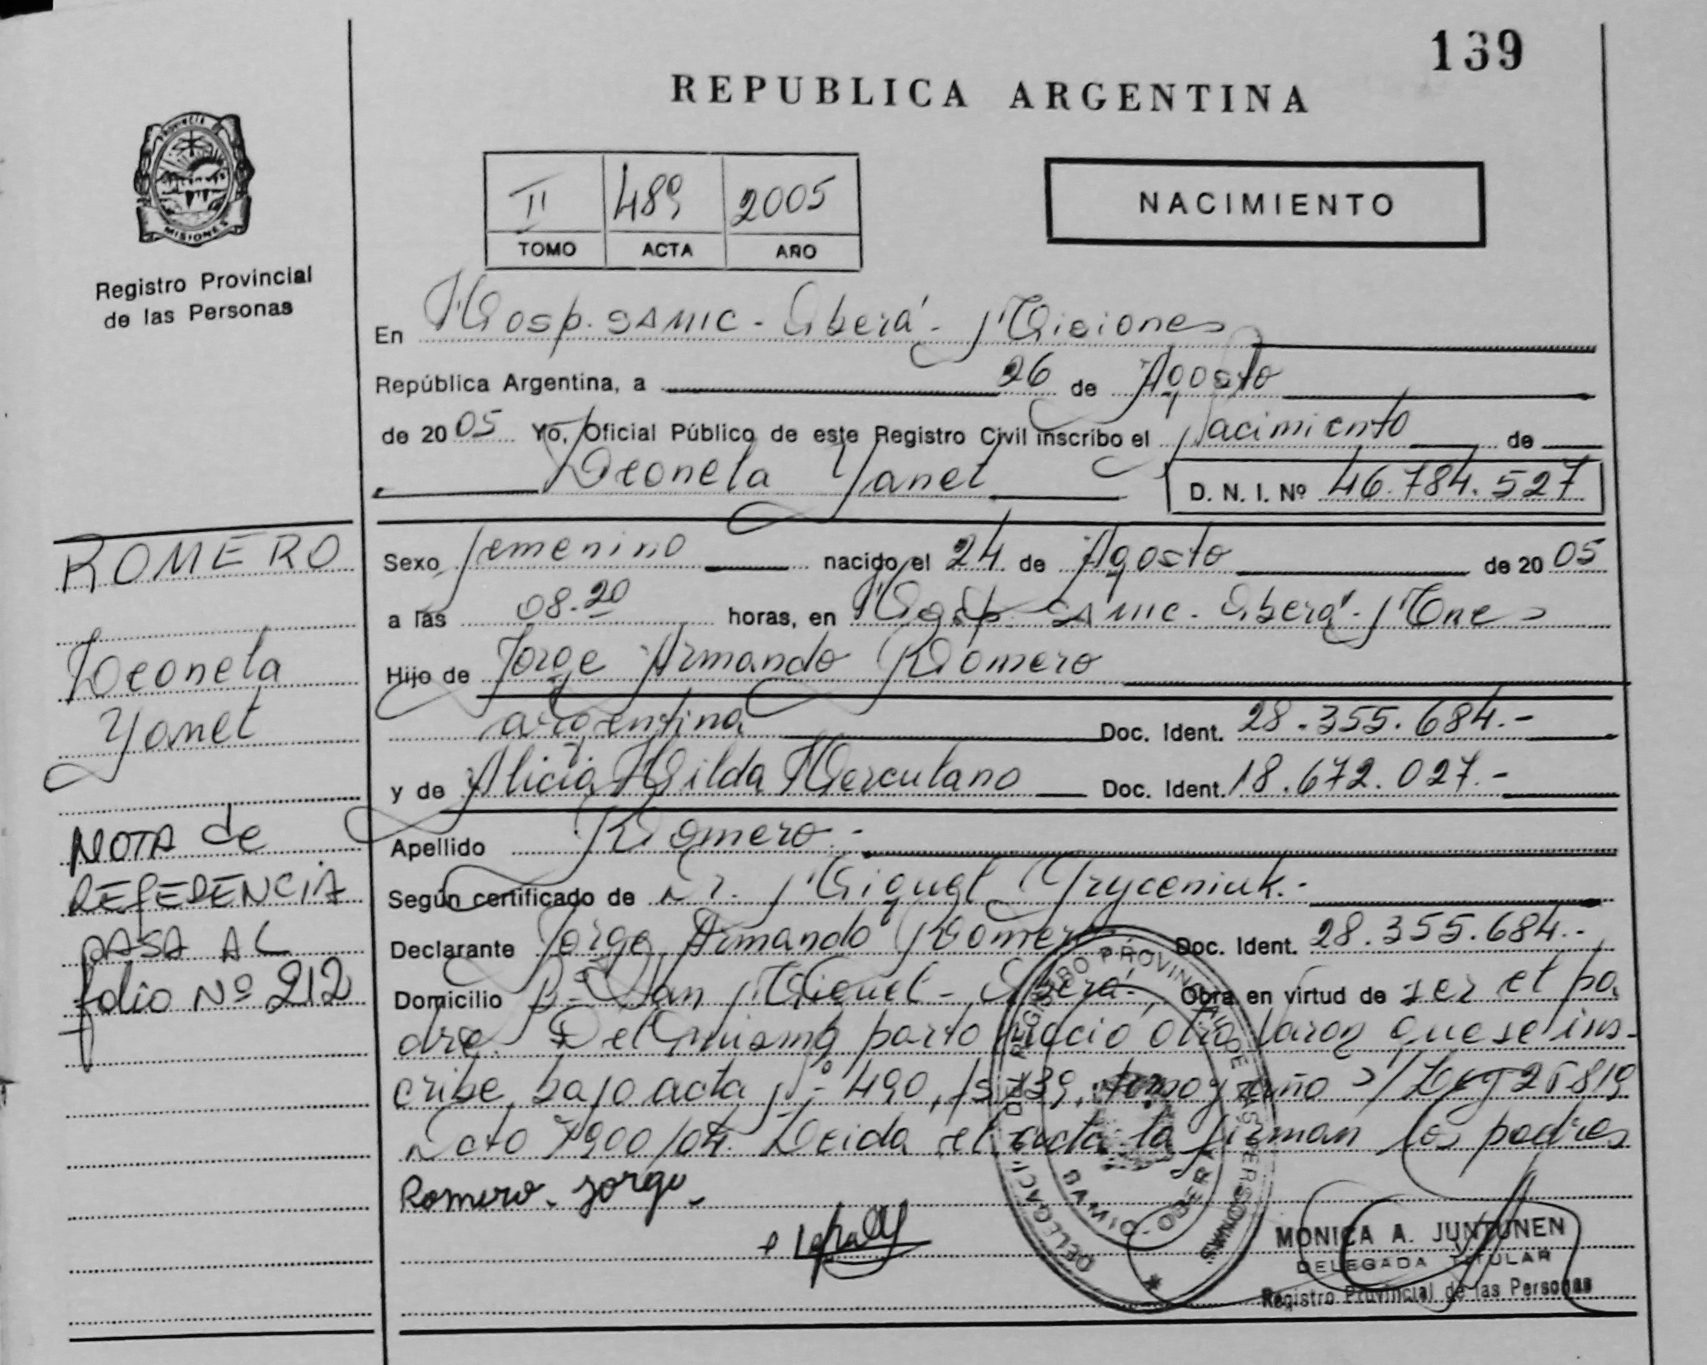 139
REPUBLICA ARGENTINA
PROVINCIA DE
MISIONES
Registro Provincial
de las Personas
II 489 2005
TOMO ACTA AÑO
NACIMIENTO
En Hosp. SAMIC - Oberá - Misiones
República Argentina, a 26 de Agosto
de 2005 Yo, Oficial Público de este Registro Civil inscribo el Nacimiento de
Leonela Yanet D. N. I. Nº 46.784.527
ROMERO
Leonela
Yanet
NOTA de
REFERENCIA
PASA AL
folio Nº 212
Sexo femenino nacido el 24 de Agosto de 2005
a las 08.20 horas, en Hosp. SAMIC - Oberá - Mnes
Hijo de Jorge Armando Romero
argentina Doc. Ident. 28.355.684.-
y de Alicia Hilda Herculano Doc. Ident. 18.672.027.-
Apellido Romero.-
Según certificado de Dr. Miguel Gryceniuk.-
Declarante Jorge Armando Romero Doc. Ident. 28.355.684.-
Domicilio Bº San Miguel - Oberá. Obra en virtud de ser el pa
dre. Del mismo parto nació otro Varon que se ins-
cribe bajo acta Nº 490, fs 139, tomo y año s/ Ley 25819
Dcto 7900/04. Leida el acta la firman los padres
Romero. Jorge.
REGISTRO PROVINCIAL DE LAS PERSONAS
OBERA
MONICA A. JUNTUNEN
DELEGADA TITULAR
Registro Provincial de las Personas